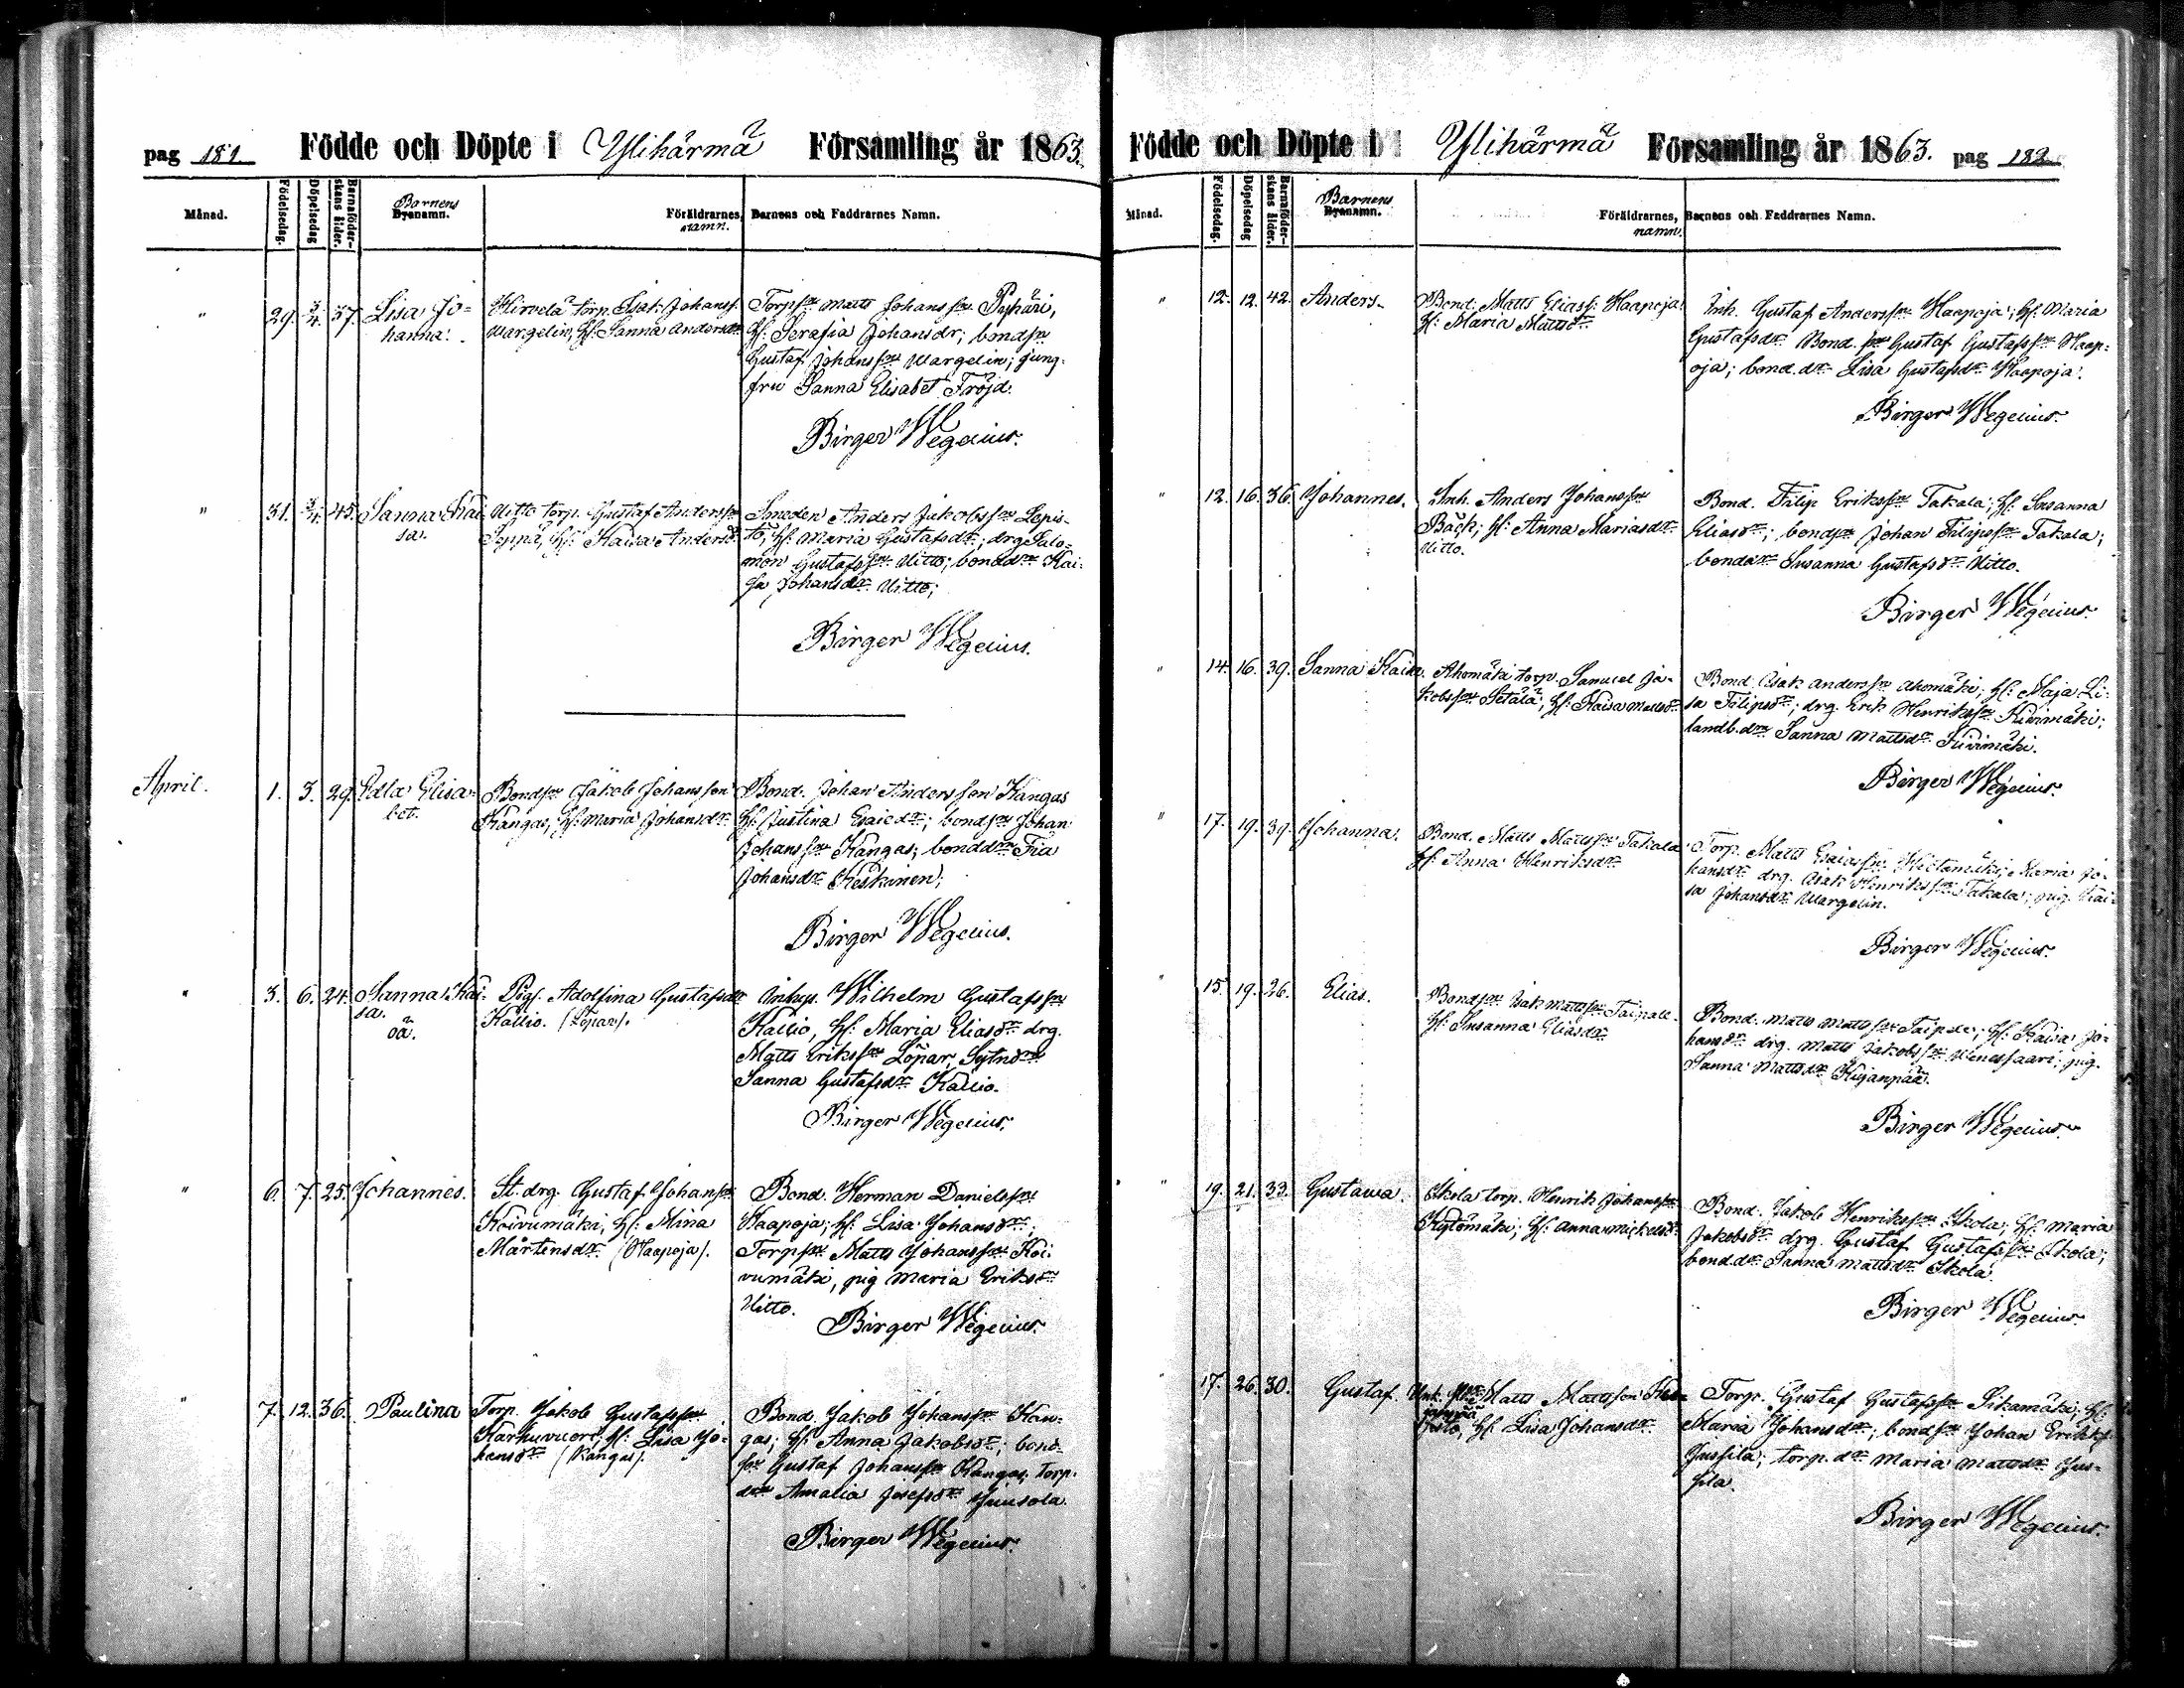 pag 181. Födde och Döpte i Ylihärmä Församling år 1863.
Månad. Födelsedag. Döpelsedag Barnaföderskans ålder. Barnens Byanamn. Föräldrarnes namn. Barnens och Faddrarnes Namn.
" 29. 3/4. 37. Lisa Johanna.
Hirvelä torp. Isak Johanss.
Wargelin, H: Sanna Andersdr
Torpsn Matts Johanssn
H: Serafia Johansdr; bondsn
Gustaf Johanssn Wargelin; jung-
fru Sanna Elisabet Fröjd.
Birger Wegelius.
" 31. 3/4. 45. Sanna Kai-
sa.
Uitto torp. Gustaf Anderssn
Seppä, H: Kaisa Andersd
Smeden Anders Jakobssn Lepis-
tö, H: Maria Gustafsdr; drg Salo-
mon Gustafssn Uitto; bonddr Kai-
sa Johansdr Uitto;
Birger Wegelius.
April. 1. 3. 29. Edla Elisa-
bet.
Bondsn Jakob Johansson
Kangas, H: Maria Johansdr
Bond. Johan Andersson Kangas
H: Justina Esaiedr; bondsn Johan
Johanssn Kangas; bonddr Fia
Johansdr Keskinen;
Birger Wegelius.
" 3. 6. 24. Sanna Kai-
sa.
oä.
Pig. Adolfina Gustafsdr
Kallio. /Löpar/.
Inhys. Wilhelm Gustafssn
Kallio, H: Maria Eliasdr drg.
Matts Erikssn Löpar, Sytndr
Sanna Gustafsdr Kallio.
Birger Wegelius.
" 6. 7. 25. Johannes.
St. drg. Gustaf Johanssn
Koivumäki, H: Mina
Mårtensdr /Haapoja/.
Bond. Herman Danielssn
Haapoja; H: Lisa Johansdr;
Torpsn Matts Johanssn Koi-
vumäki, pig Maria Eriksdr
Uitto.
Birger Wegelius.
" 7. 12. 36. Paulina
Torp. Jakob Gustafssn
Karhuvuori, H: Lisa Jo-
hansdr /Kangas/.
Bond. Jakob Johanssn Kan-
gas; H: Anna Jakobsdr; bond-
sn Gustaf Johanssn Kangas, torp.
dr Amalia Josefsdr Juusola.
Birger Wegelius.
Födde och Döpte i Ylihärmä Församling år 1863. pag 182.
Månad. Födelsedag. Döpelsedag Barnaföderskans ålder. Barnens Byanamn. Föräldrarnes, namn. Barnens och Faddrarnes Namn.
" 12. 12. 42. Anders.
Bond. Matts Eliass. Haapoja
H: Maria Mattsdr
Inh. Gustaf Anderssn Haapoja; H: Maria
Gustafsdr Bond. sn Gustaf Gustafssn Haap-
oja; bond. dr Lisa Gustafsdr Haapoja.
Birger Wegelius.
" 12. 16. 36. Johannes.
Inh. Anders Johanssn
Bäck; H: Anna Mariasdr
Uitto.
Bond. Filip Erikssn Takala; H: Susanna
Eliasdr; bondsn Johan Filipssn Takala;
bonddr Susanna Gustafsdr Uitto.
Birger Wegelius.
" 14. 16. 39. Sanna Kaisa.
Ahomäki torp. Samuel Ja-
kobssn Setälä; H: Kaisa Mattsdr
Bond. Isak Anderssn Ahomäki; H: Maja Li-
sa Filipsdr; drg. Erik Henrikssn Kivimäki;
landb.dr Sanna Mattsdr Kivimäki.
Birger Wegelius.
" 17. 19. 39. Johanna.
Bond. Matts Mattssn Takala
H: Anna Henriksdr
Torp. Matts Esaiassn Hietamäki; Maria Jo-
hansdr drg. Isak Henrikssn Takala; pig. Kai-
sa Johansdr Wargelin.
Birger Wegelius.
" 15. 19. 26. Elias.
Bondsn Isak Mattssn Taipale.
H: Susanna Eliasdr
Bond. Matts Mattssn Taipale; H: Kaisa Jo-
hansdr drg. Matts Jakobssn Wenessaari; pig.
Sanna Mattsdr Kujanpää.
Birger Wegelius.
" 19. 21. 33. Gustawa.
Ekola torp. Henrik Johanssn
Kytömäki; H: Anna Mickelsdr
Bond. Jakob Henrikssn Ekola; H: Maria
Jakobsdr drg. Gustaf Gustafssn Ekola;
bond.dr Sanna Mattsdr Ekola.
Birger Wegelius.
" 17. 26. 30. Gustaf.
Matts Mattsson
H: Lisa Johansdr
Torp. Gustaf Gustafssn Sikamäki; H:
Maria Johansdr; bondsn Johan Erikss.
Jussila; torp. dr Maria Mattsdr Jus-
sila.
Birger Wegelius.